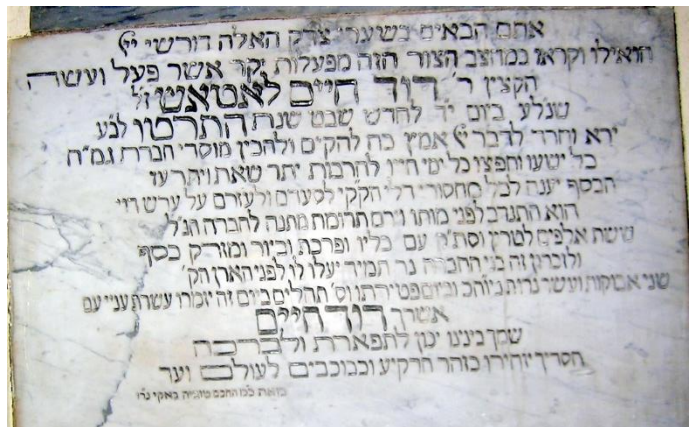 אתם הבאים בשערי צדק האלה דורשי ייי
הואילו וקראו במוצב הצור הזה מפעלות יקר אשר פעל ועשה
הקצין ר׳ דוד חיים לאטאש ז״ל
שנלע״ ביום י״ד לחדש שבט שנת התרטו לב״ע
ירא וחרד לדבר ייי אמיץ כח להקים ולהכין מוסדי חברת גמ״ח
כל ישעו וחפצו כל ימי חייו להרבות יתר שאת ויתר עז
הכסף יענה לכל מחסורי דלי הקק״י לסעדם ולעזרם על ערש דוי
הוא התנדב לפני מותו גרם תרומת מתנה לחברה הנ״ל
ששת אלפים לטרין וסת״ עם כליו ופרכת וכיור ומזרק כסף
ולזכרון זה בני החברה נר תמיד יעלו לו לפני הארון הק׳
שני אבוקות ועשר נרות וביום פטירתו וס׳ תהלים ביום זה יזמרו עשרת עניי עם
אשרך דוד חיים
שמך בינינו יכון לתפארת ולברכה
חסדיך יזהירו כזהר הרקיע וככוכבים לעולם ועד
מאת כמ׳ החכם טוביה באקי נ״ו